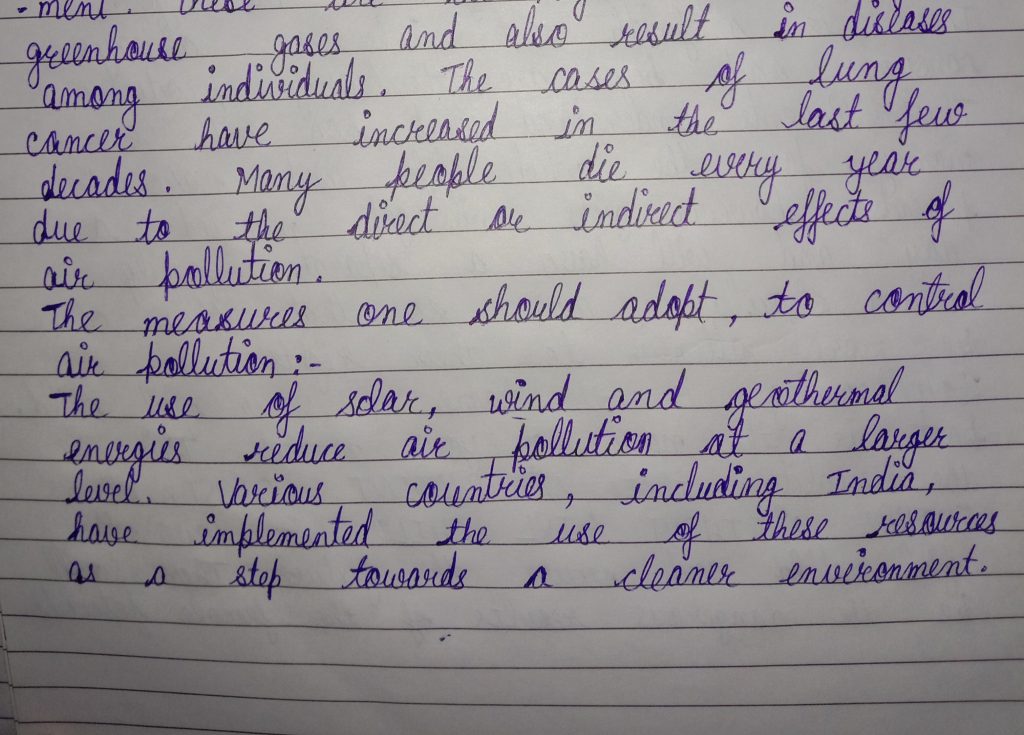 -ment. These
greenhouse gases and also result in diseases
among individuals. The cases of lung
cancer have increased in the last few
decades. Many people die every year
due to the direct or indirect effects of
air pollution.
The measures one should adopt, to control
air pollution :-
The use of solar, wind and geothermal
energies reduce air pollution at a larger
level. Various countries, including India,
have implemented the use of these resources
as a step towards a cleaner environment.